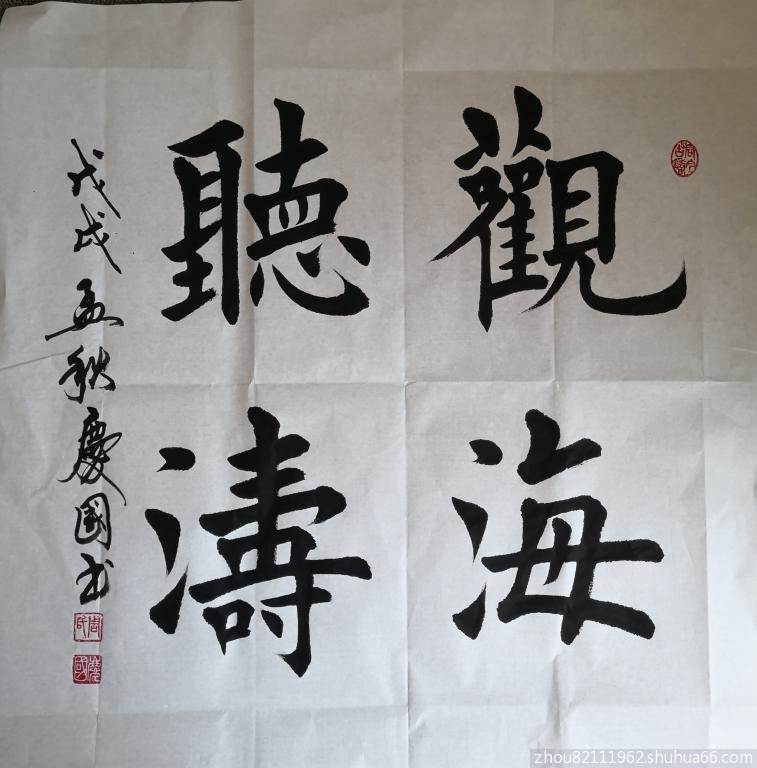 觀海
聽濤
戊戌孟秋慶國书
周氏
慶國
zhou82111962.shuhua66.com